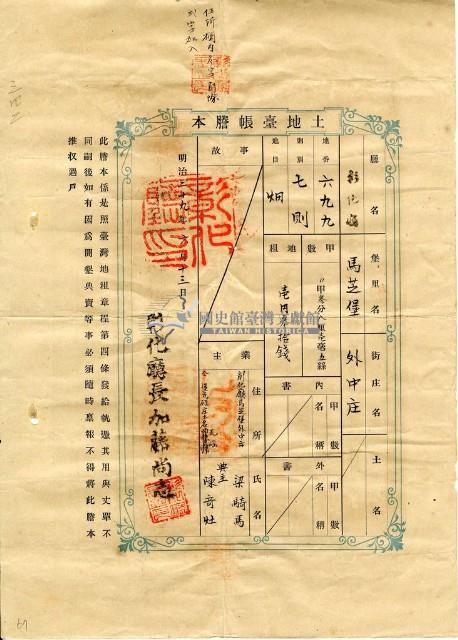 土地臺帳謄本
廳名
彰化廳
堡里名
馬芝堡
街庄名
外中庄
土名
地番
六九九
則別
七則
地目
畑
甲數
地租
壱円参拾錢
內書
甲數
名稱
外書
甲數
名稱
事故
業主
住所
氏名
彰化廳馬芝堡外中庄
梁騎馬
典主
陳奇灶
明治三十九年
十三日
彰化廳長加藤尚志
彰化廳印
此謄本係是照臺灣地租章程第四條發給執憑其用與丈單不
同嗣後如有因爲開墾典賣等事必須隨時稟報不得將此謄本
推收過戶
三四二
國史館臺灣文獻館
TAIWAN HISTORICA